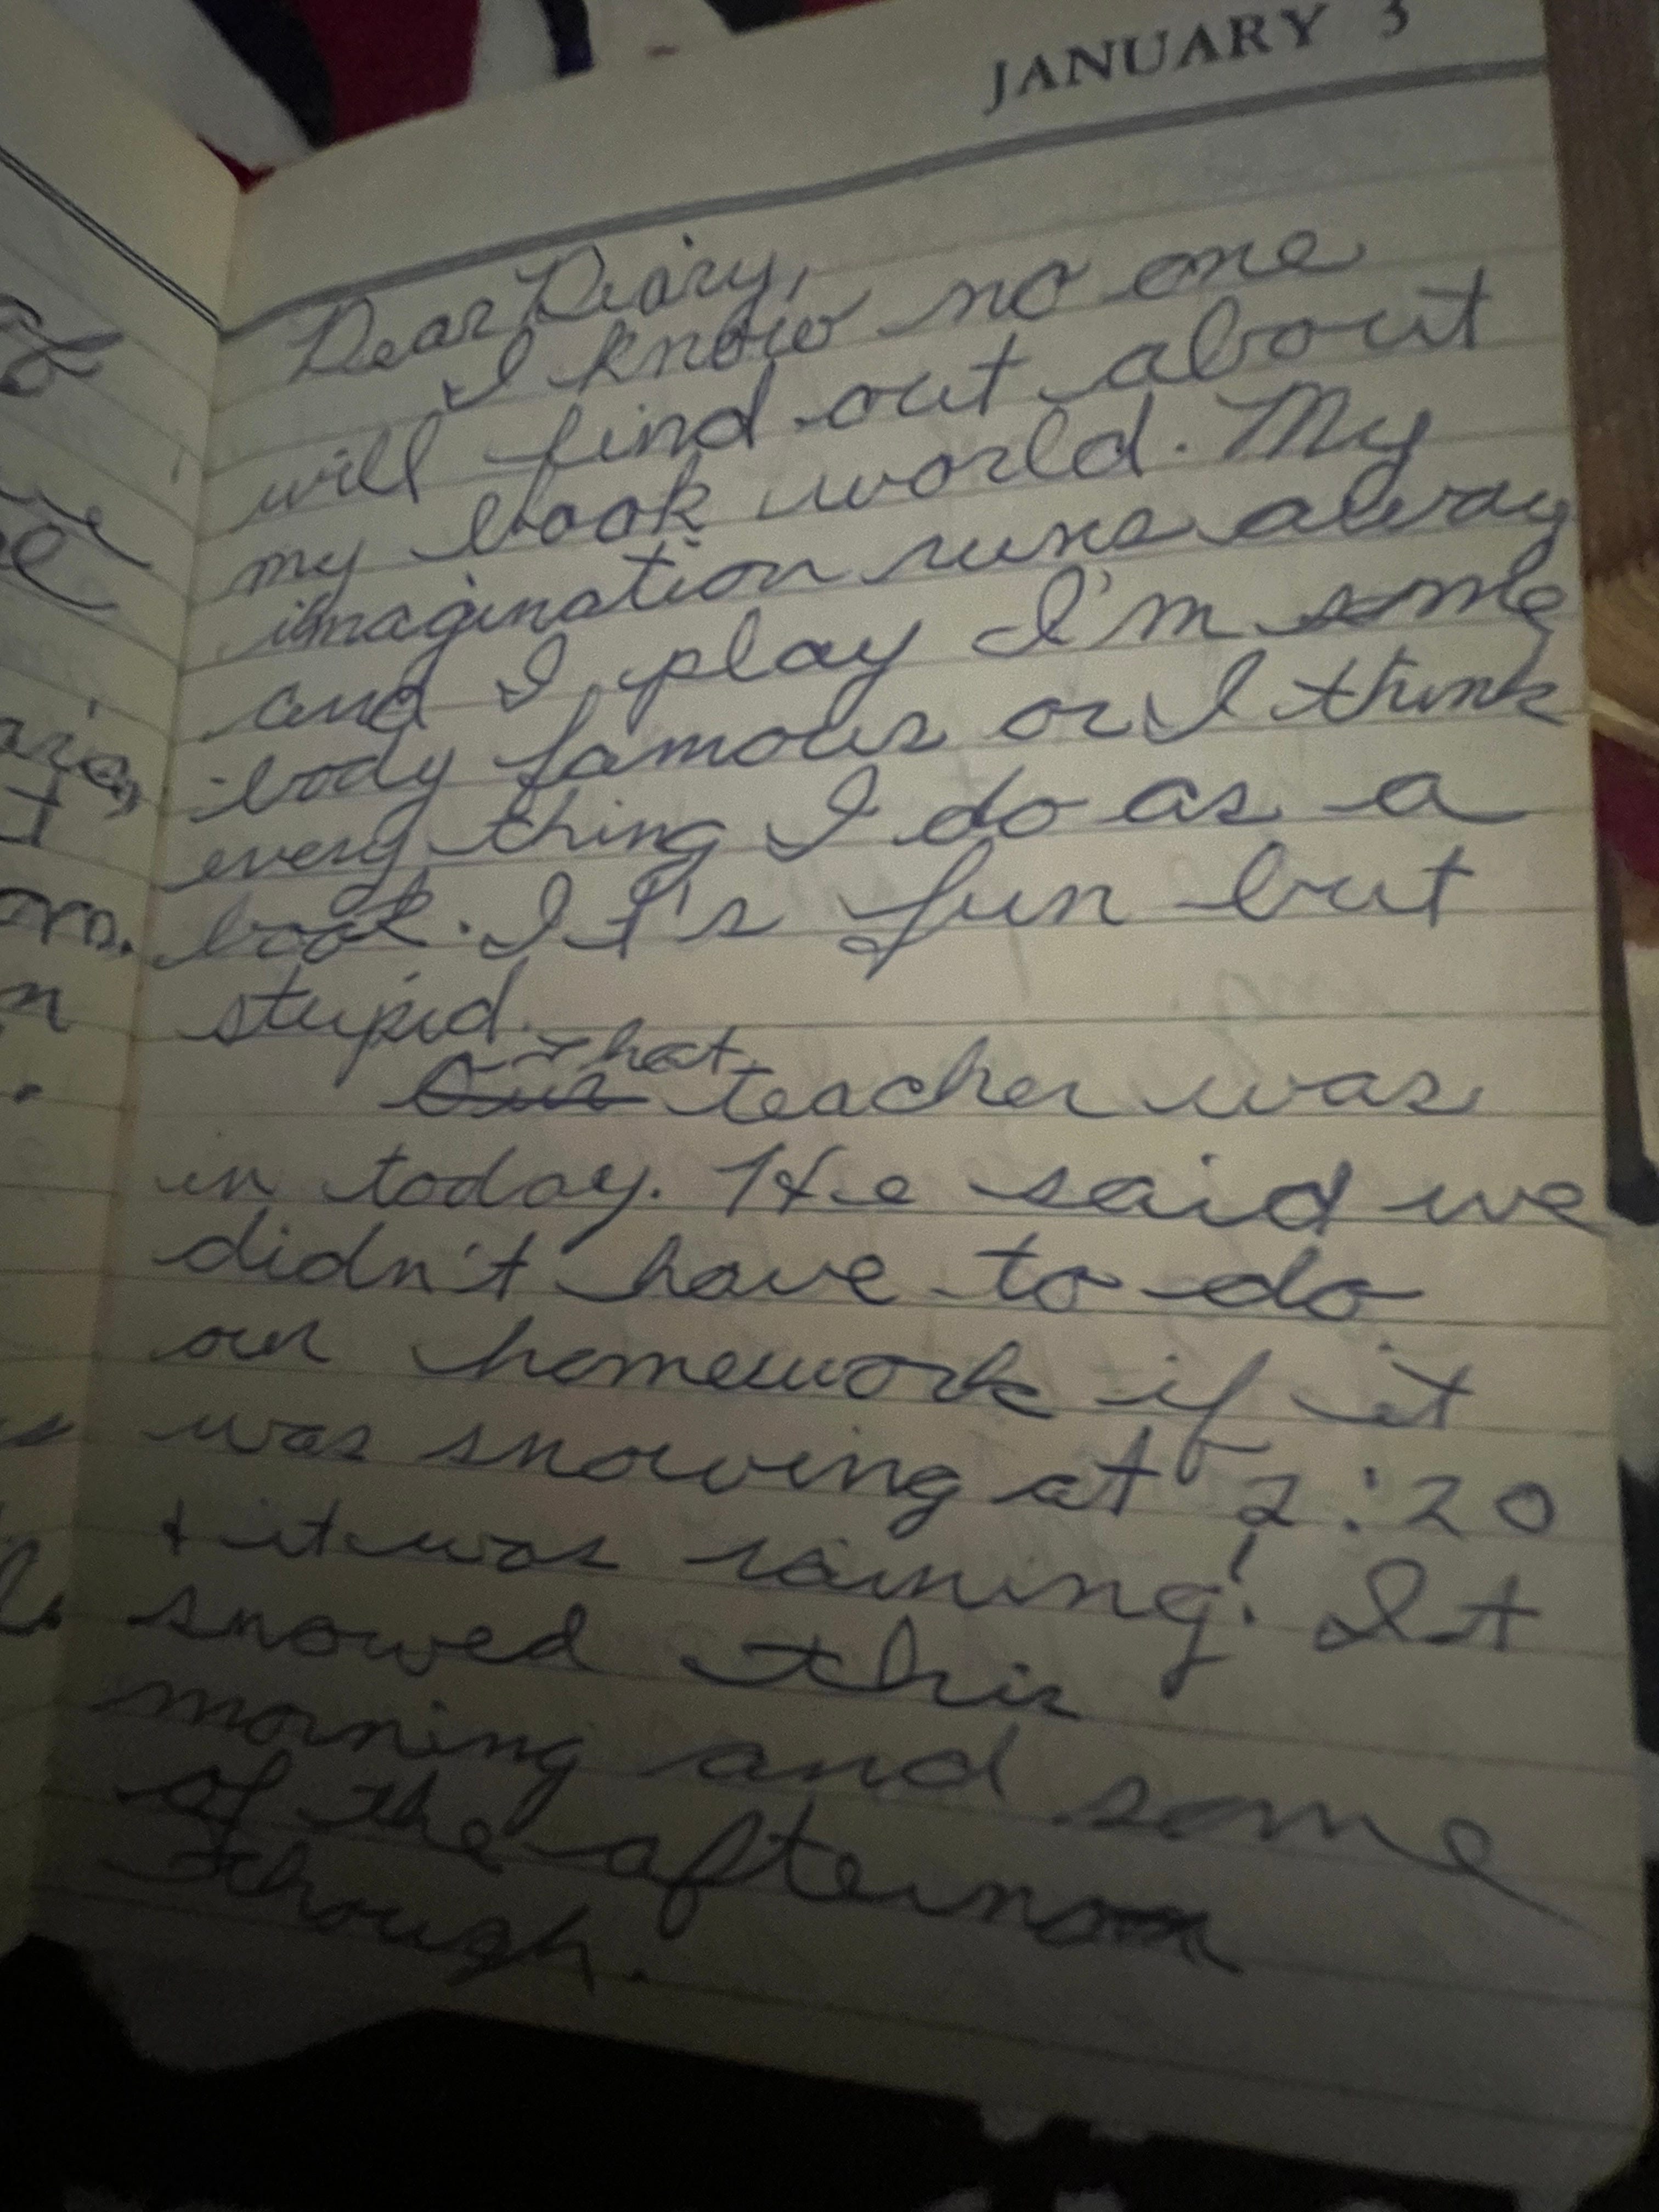 JANUARY 3
Dear Diary,
I know no one
will find out about
my book world. My
imagination runs away
and I play I'm some
body famous or I think
every thing I do as a
book. It's fun but
stupid.
That
Our teacher was
in today. He said we
didn't have to do
our homework if it
was snowing at 2:20
+ it was raining! It
snowed this
morning and some
of the afternoon
though.